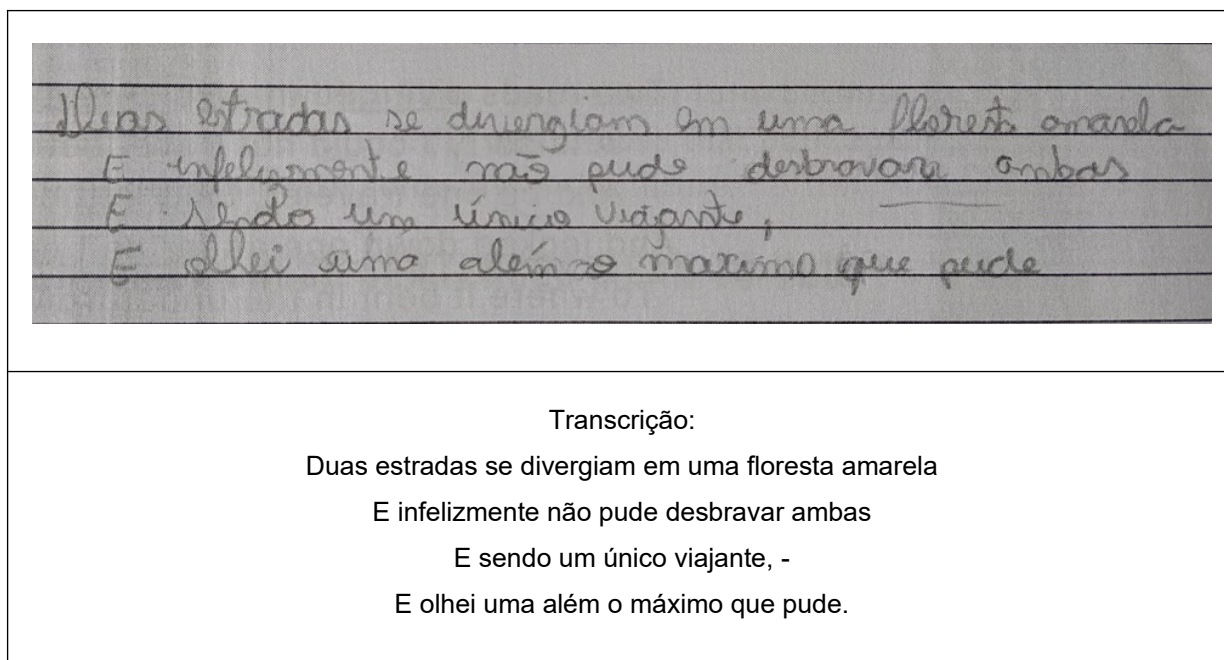 Duas estradas se divergiam em uma florest amarela
E infelizmente não pude desbravar ambas
E sendo um único viajante,
E olhei uma além o maximo que pude
Transcrição:
Duas estradas se divergiam em uma floresta amarela
E infelizmente não pude desbravar ambas
E sendo um único viajante, -
E olhei uma além o máximo que pude.